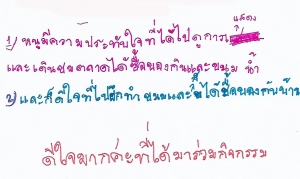 1) หนูมีความประทับใจที่ได้ไปดูการแสดง
และเดินชมตลาดได้ซื้อของกินและขนม น้ำ
2) และก็ดีใจที่ไปฝึกทำขนมและได้ซื้อของกินบ้าน
ดีใจมากค่ะที่ได้มาร่วมกิจกรรม